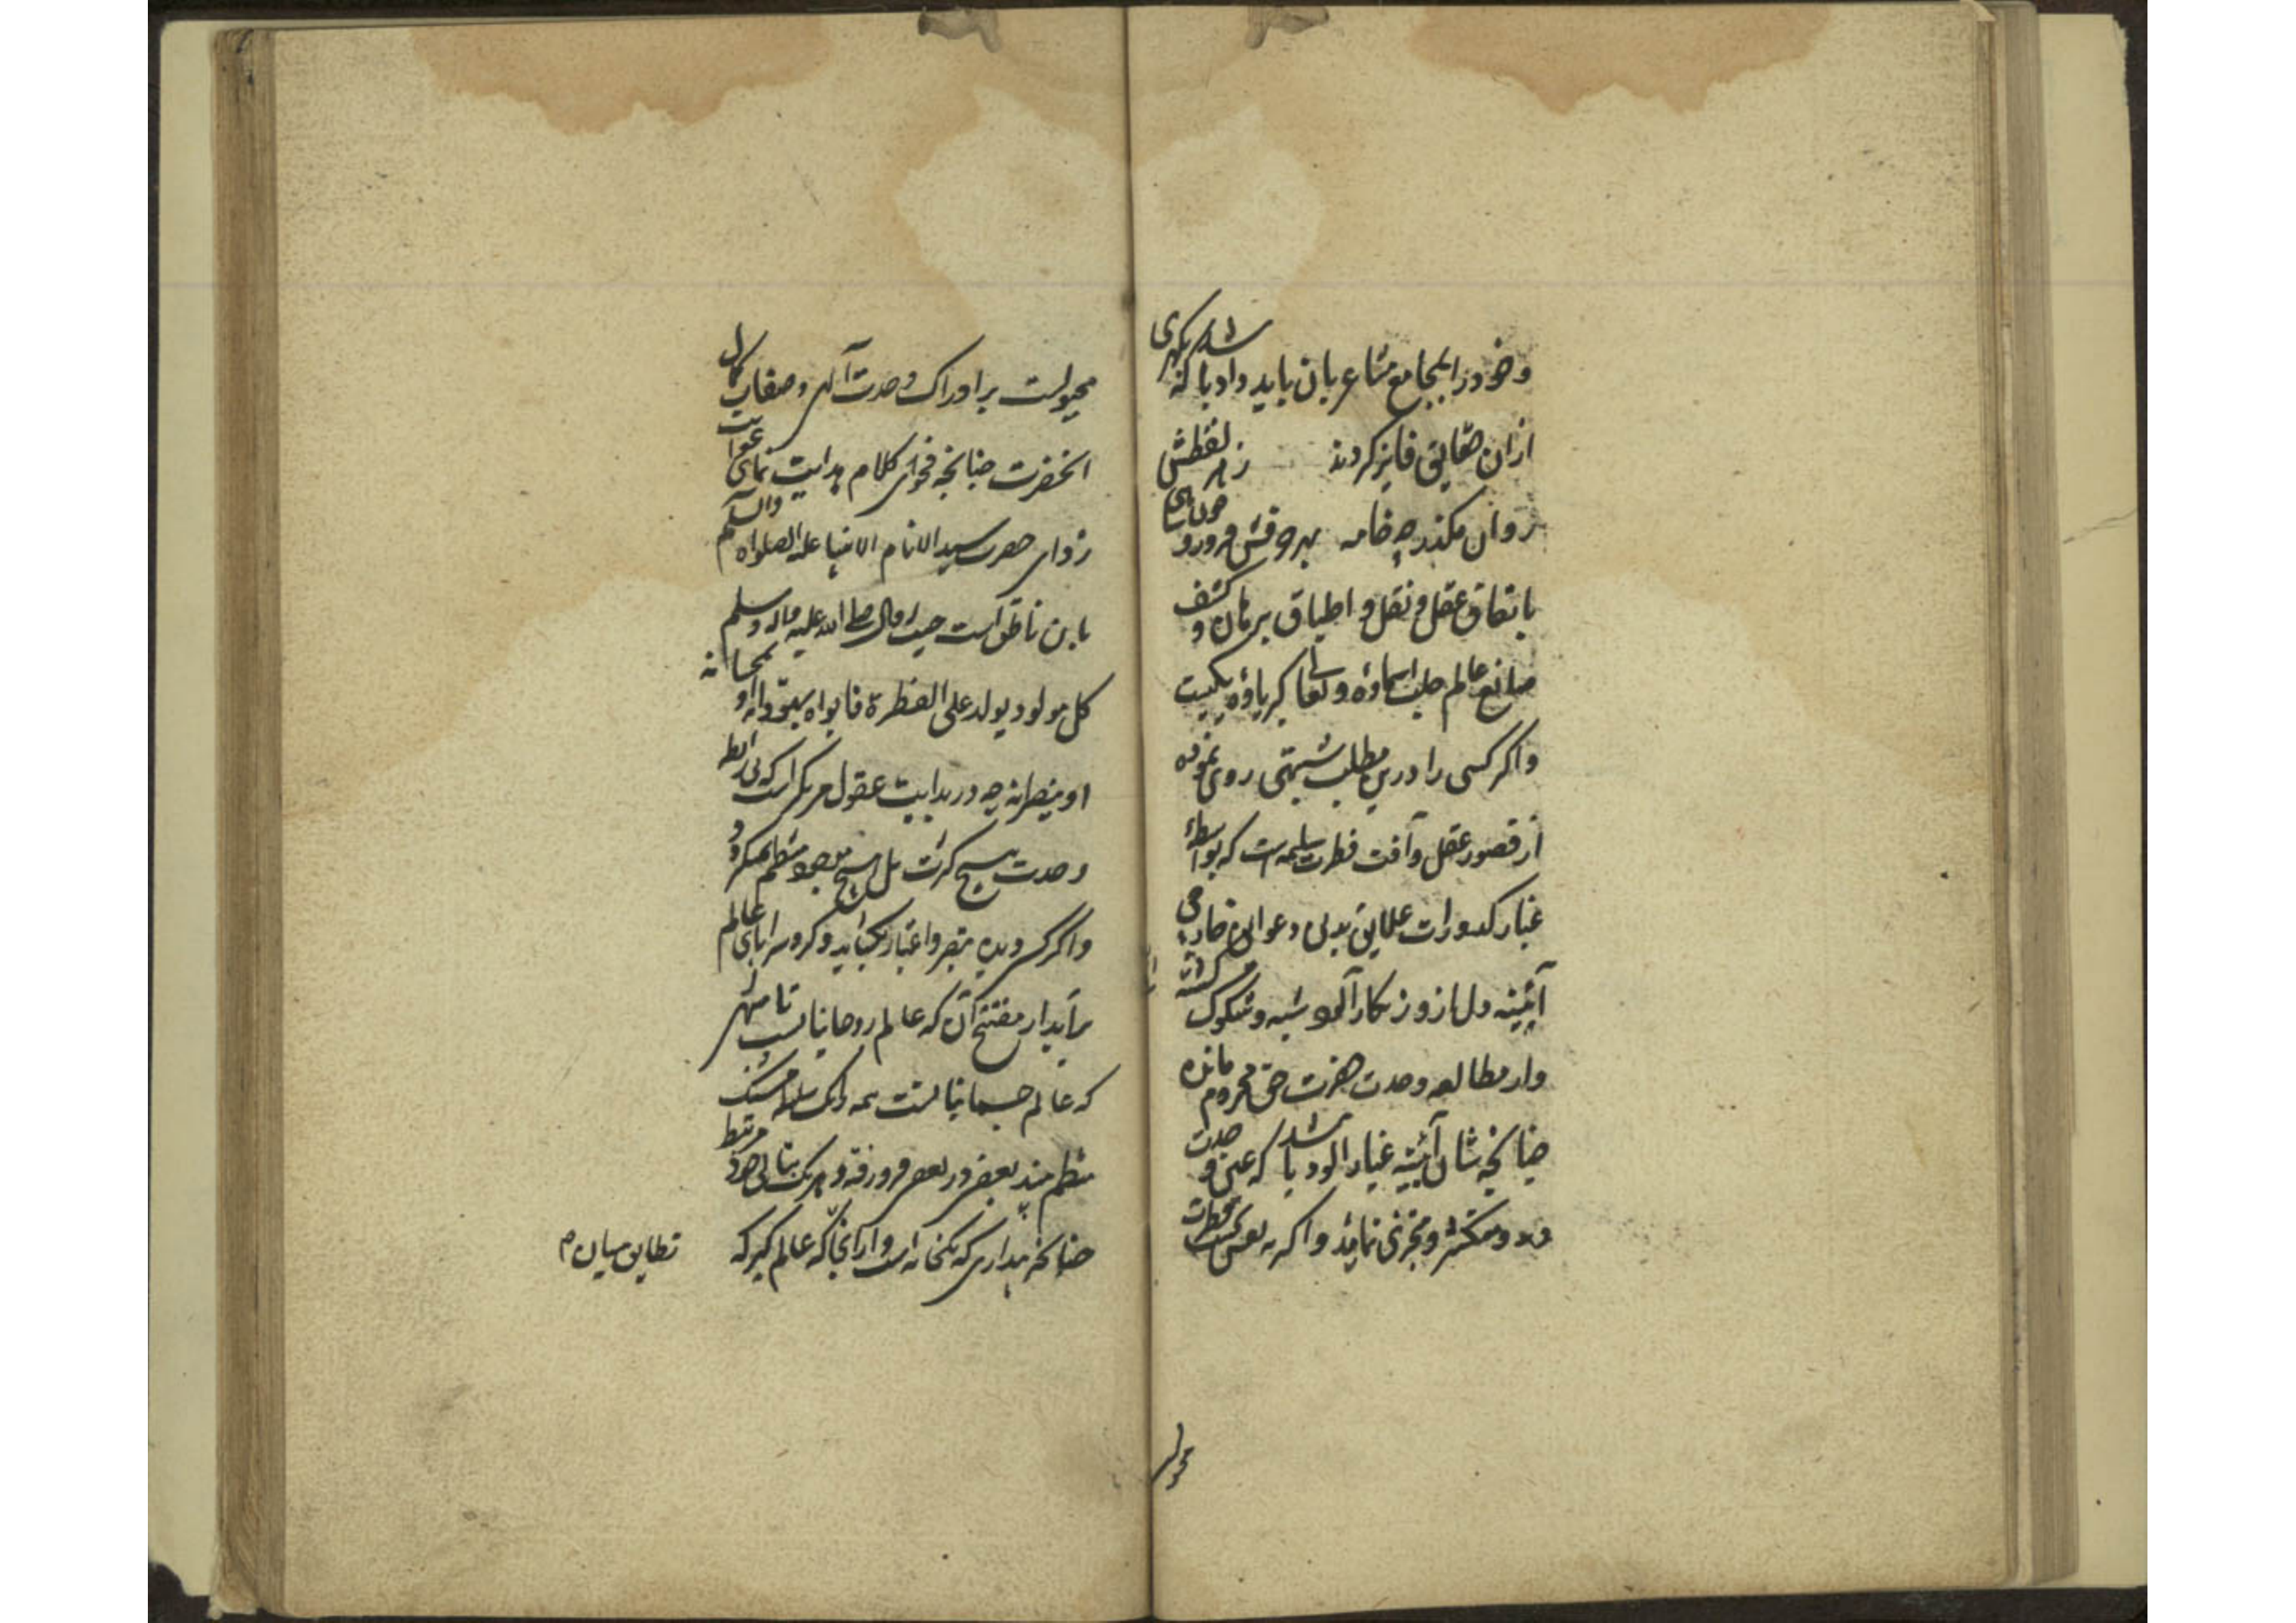 و خود را بمجامع مشاعر بان باید داد باشد که بهری
ازان حقایق فایز کردند ز هر لفظش
روان مکذر چو خامه بهر حرفش فرورو چون سیاهی
باتفاق عقل و نقل و اطباق برهان و کشف
صانع عالم جلت اسماؤه و تعالی کبریاؤه یکیست
و اکر کسی را درین مطلب شبهتی روی نموده
از قصور عقل و آفت فطرت سلیمه است که بواسطهٔ
غبار کدورات علایق بدنی و عوایق خارجی
آئینه دل از و زنکار آلود شبه و شکوک کشته
و از مطالعه وحدت حضرت حق محروم مانده
چنانچه شان آئینه غبار الود باشد که عین وحدت
متکثر و متجزی نماید و اکر نه نفس فطرت
مجبولست بر ادراک وحدت آلهی و صفات کمال
انحضرت چنانچه فحوای کلام هدایت نمای غوایت
زدای حضرت سید الانام الانبیا علیه الصلواة والسلام
باین ناطق است حیث قال صلی الله علیه واله وسلم
کل مولود یولد علی الفطرة فابواه یهودانه او یمجسانه
او ینصرانه چه در بدایت عقول مرکز است که بی رابطه
وحدت هیچ کثرت بل هیچ موجود منتظم نمیکردد
و اکر کسی دیده تبصر و اعتبار بکشاید و کرد سراپای عالم
برآید از مفتتح آن که عالم روحانیانست تا منتهی
که عالم جسمانیانست همه را یک سلسله منسبک
منتظم بیند بعضی در بعضی فرو رفته و هر یک بتالی خود مرتبط
چنانچه پنداری که یکخانه است و از آنجا که عالم کبیر که
تطابق میان